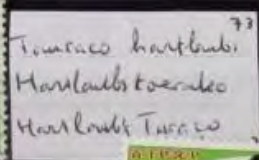 73
Tauraco hartlaubi
Hartlaubs toerako
Hartlaub's Turaco